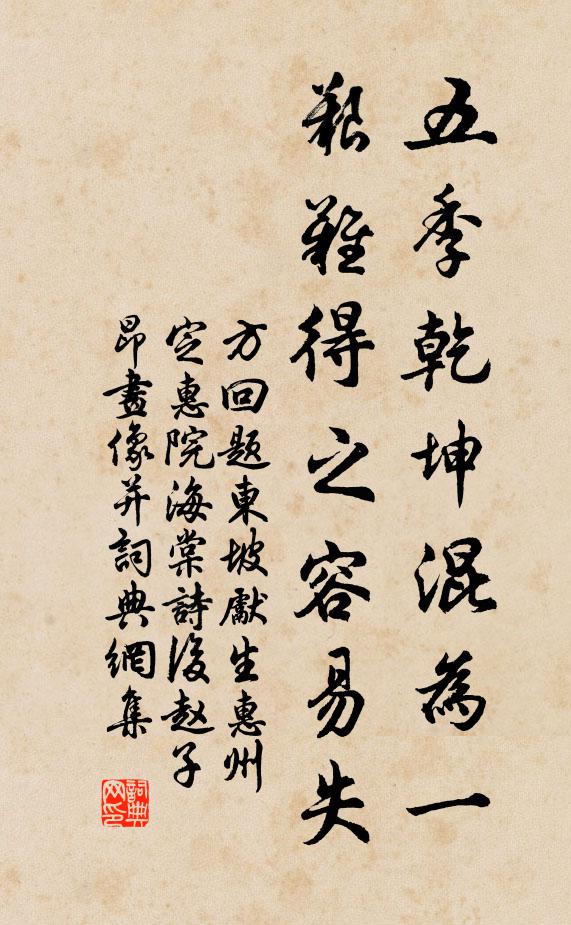 五季乾坤混為一
艱難得之容易失
方回題東坡獻生惠州
定惠院海棠詩後赵子
昂畫像并詞典網集
詞典
网印